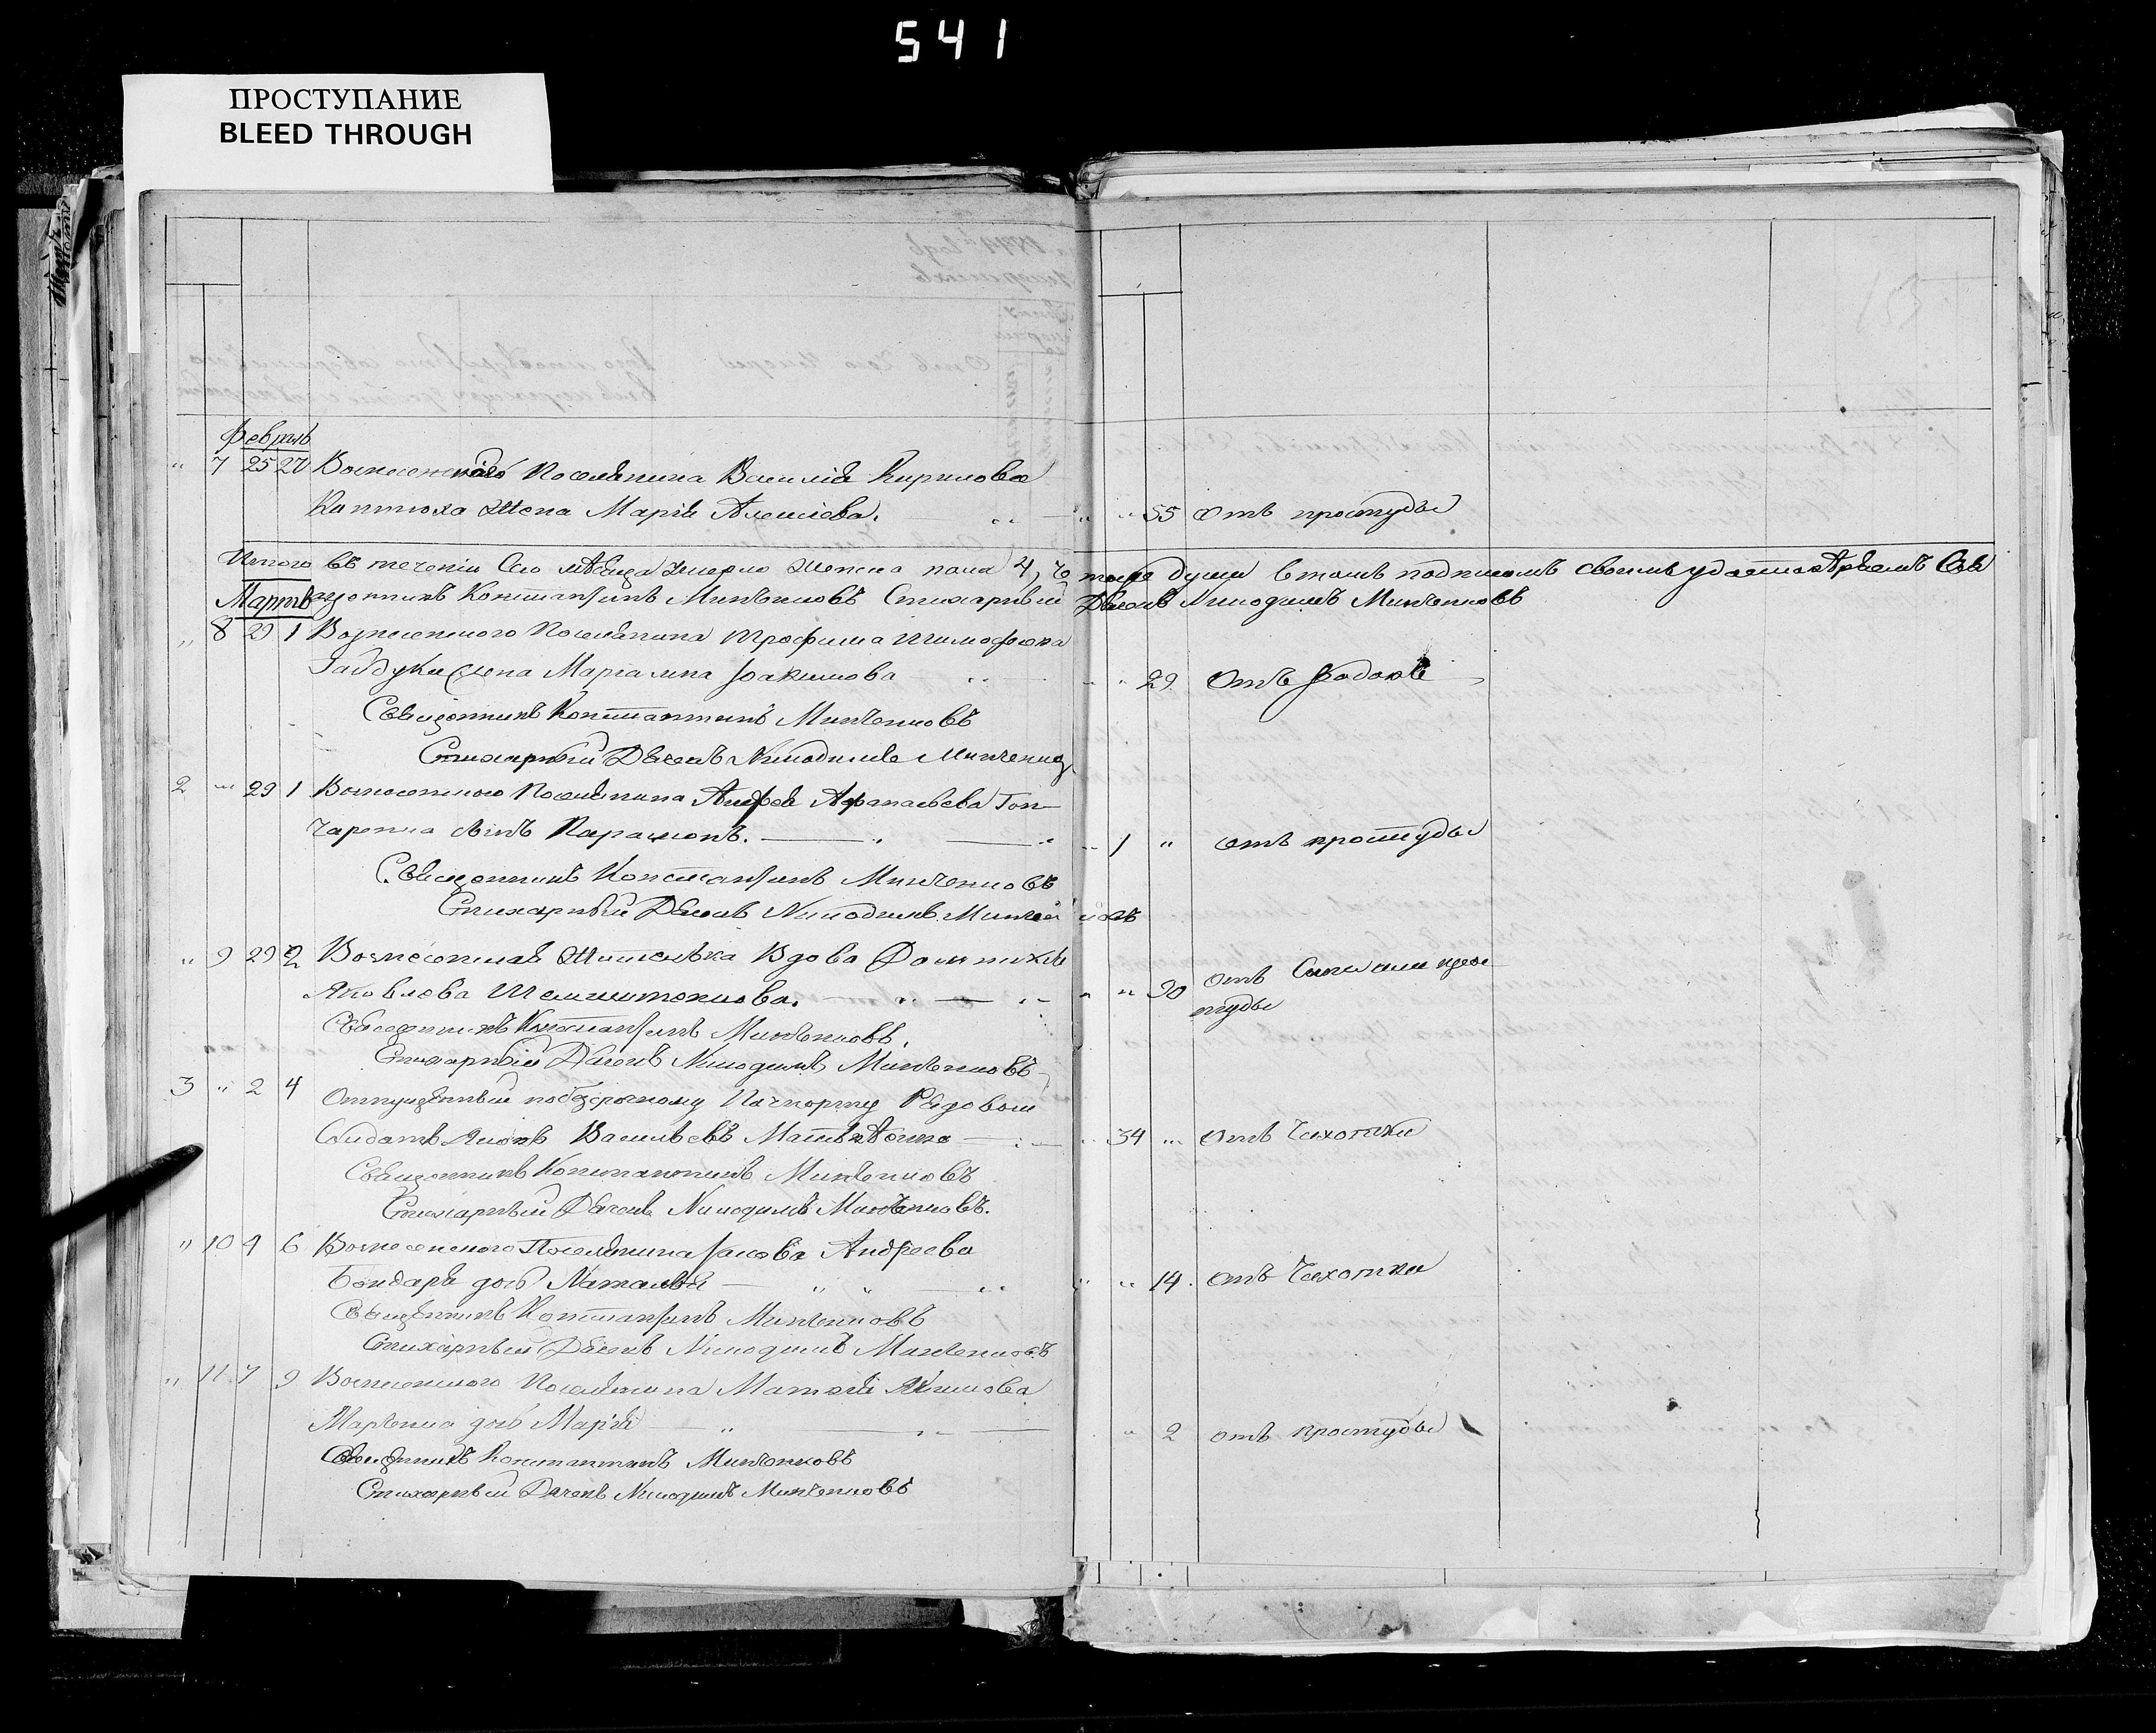 541
ПРОСТУПАНИЕ
BLEED THROUGH
Февраль
" 7 25 27 Вознесенскаго Поселянина Василія Кирилова
Каптюха Жена Марія Алексіева. " " 55 отъ простуды
Итого въ теченіи Сего мѣсяца умерло женска пола 4, четыре души въ томъ подписомъ своимъ удостовѣряемъ Свя
Мартъ
щенникъ Константинъ Минченковъ Стихарный Дьячокъ Никодимъ Минченковъ
" 8 29 1 Вознесенского Поселянина Трофима Тимофеева
Гайдука жена Марталина Іоакимова " " 29 Отъ Родовъ
Священникъ Константинъ Минченковъ
Стихарный Дьячокъ Никодимъ Минченков
2 " 29 1 Вознесенского Поселянина Андрея Афанасьева Гон-
чаренка сынъ Парамонъ. " " 1 " отъ простуды
Священникъ Константинъ Минченковъ
Стихарный Дьячокъ Никодимъ Минченковъ
" 9 29 2 Вознесенская Жителька Вдова Домникія
Яковлева " " 90 отъ прос
туды
Священникъ Константинъ Минченковъ.
Стихарный Дьячокъ Никодимъ Минченковъ
3 " 2 4 Отпущенный по безсрочному Пачпорту Рядовой
Солдатъ Яковъ Васильевъ 34 " отъ Чахотки
Священникъ Константинъ Минченковъ
Стихарный Дьячокъ Никодимъ Минченковъ.
" 10 4 6 Вознесенского Поселянина Іакова Андреева
Бондаря дочь Наталья " " 14. отъ Чахотки
Священникъ Константинъ Минченковъ
Стихарный Дьячокъ Никодимъ Минченковъ
" 11 7 9 Вознесенского Поселянина Матфія Якимова
Марченка дочь Марія " " 2 отъ простуды
Священникъ Константинъ Минченковъ
Стихарный Дьячокъ Никодимъ Минченковъ